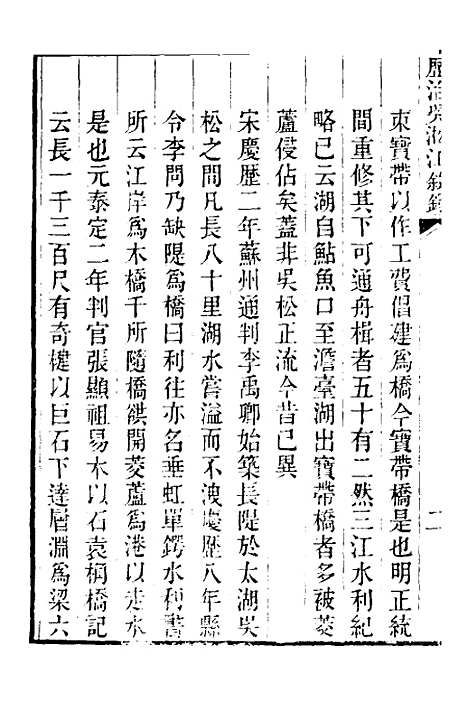 歷治吳淞江錄
二
束寶帶以作工費倡建爲橋今寶帶橋是也明正統
間重修其下可通舟楫者五十有二然三江水利紀
略已云湖自鮎魚口至澹臺湖出寶帶橋者多被菱
蘆侵佔矣蓋非吳松正流今昔已異
宋慶歷二年蘇州通判李禹卿始築長隄於太湖吳
松之間凡長八十里湖水嘗溢而不洩慶歷八年縣
令李問乃缺隄爲橋曰利往亦名垂虹單鍔水利書
所云江岸爲木橋千所隨橋谼開菱蘆爲港以走水
是也元泰定二年判官張顯祖易木以石袁桷橋記
云長一千三百尺有奇楗以巨石下達層淵爲梁六